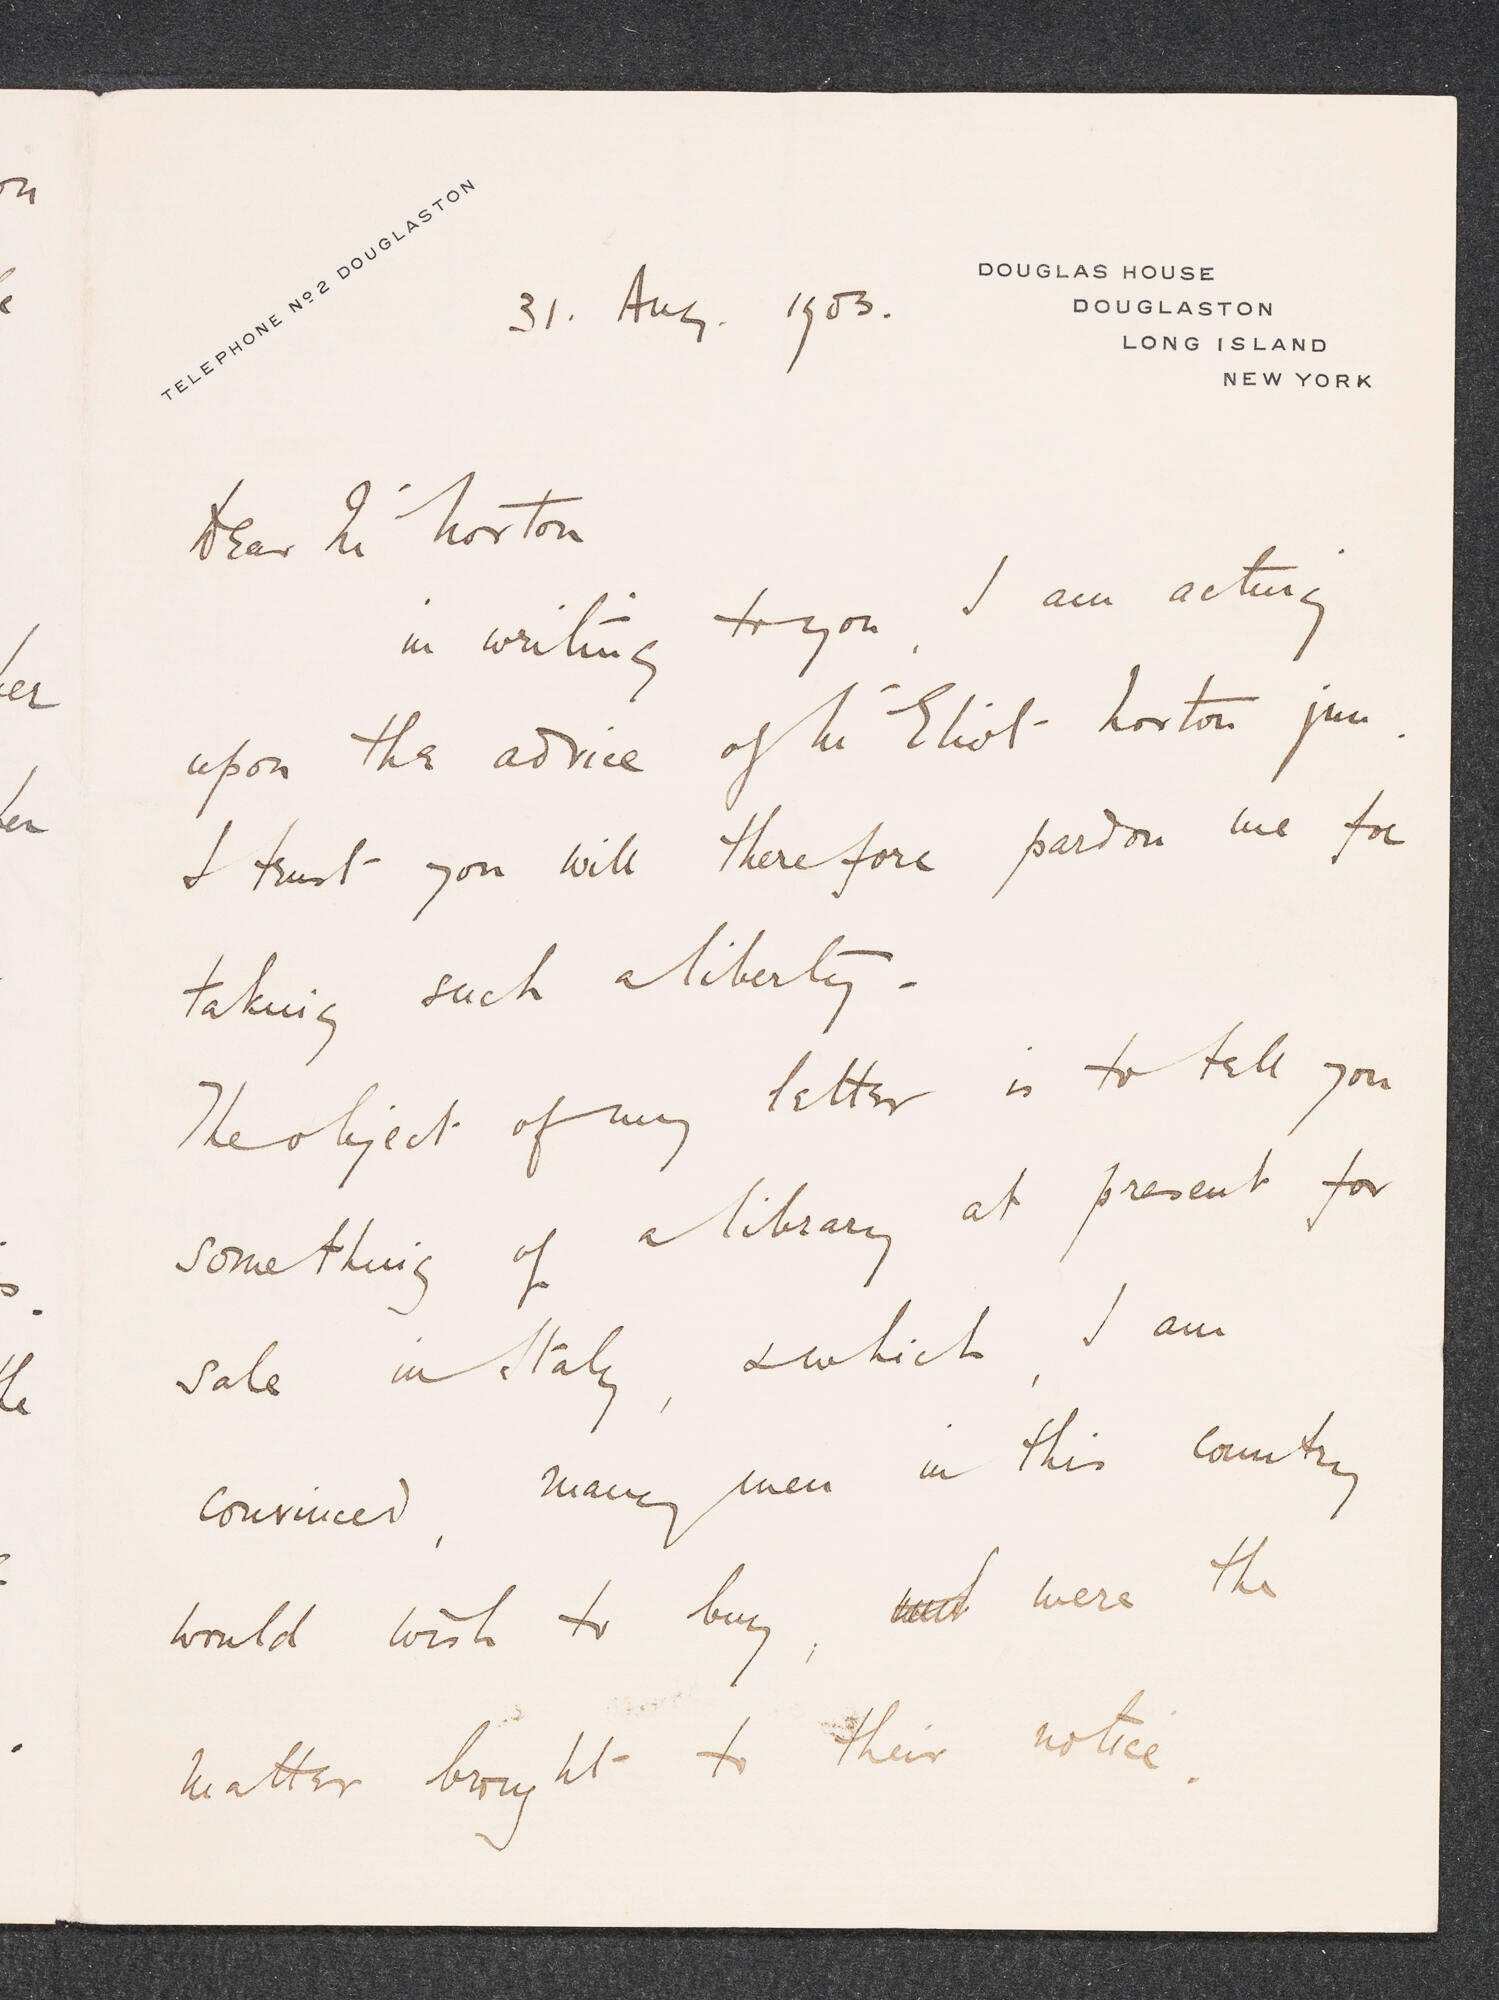 TELEPHONE Nº 2 DOUGLASTON
DOUGLAS HOUSE
DOUGLASTON
LONG ISLAND
NEW YORK
31. Aug. 1903.
Dear Mr Norton
in writing to you, I am acting
upon the advice of Mr Eliot Norton jun.
I trust you will therefore pardon me for
taking such a liberty.
The object of my letter is to tell you
something of a library at present for
sale in Italy, & which, I am
convinced, many men in this country
would wish to buy, were the
matter brought to their notice.